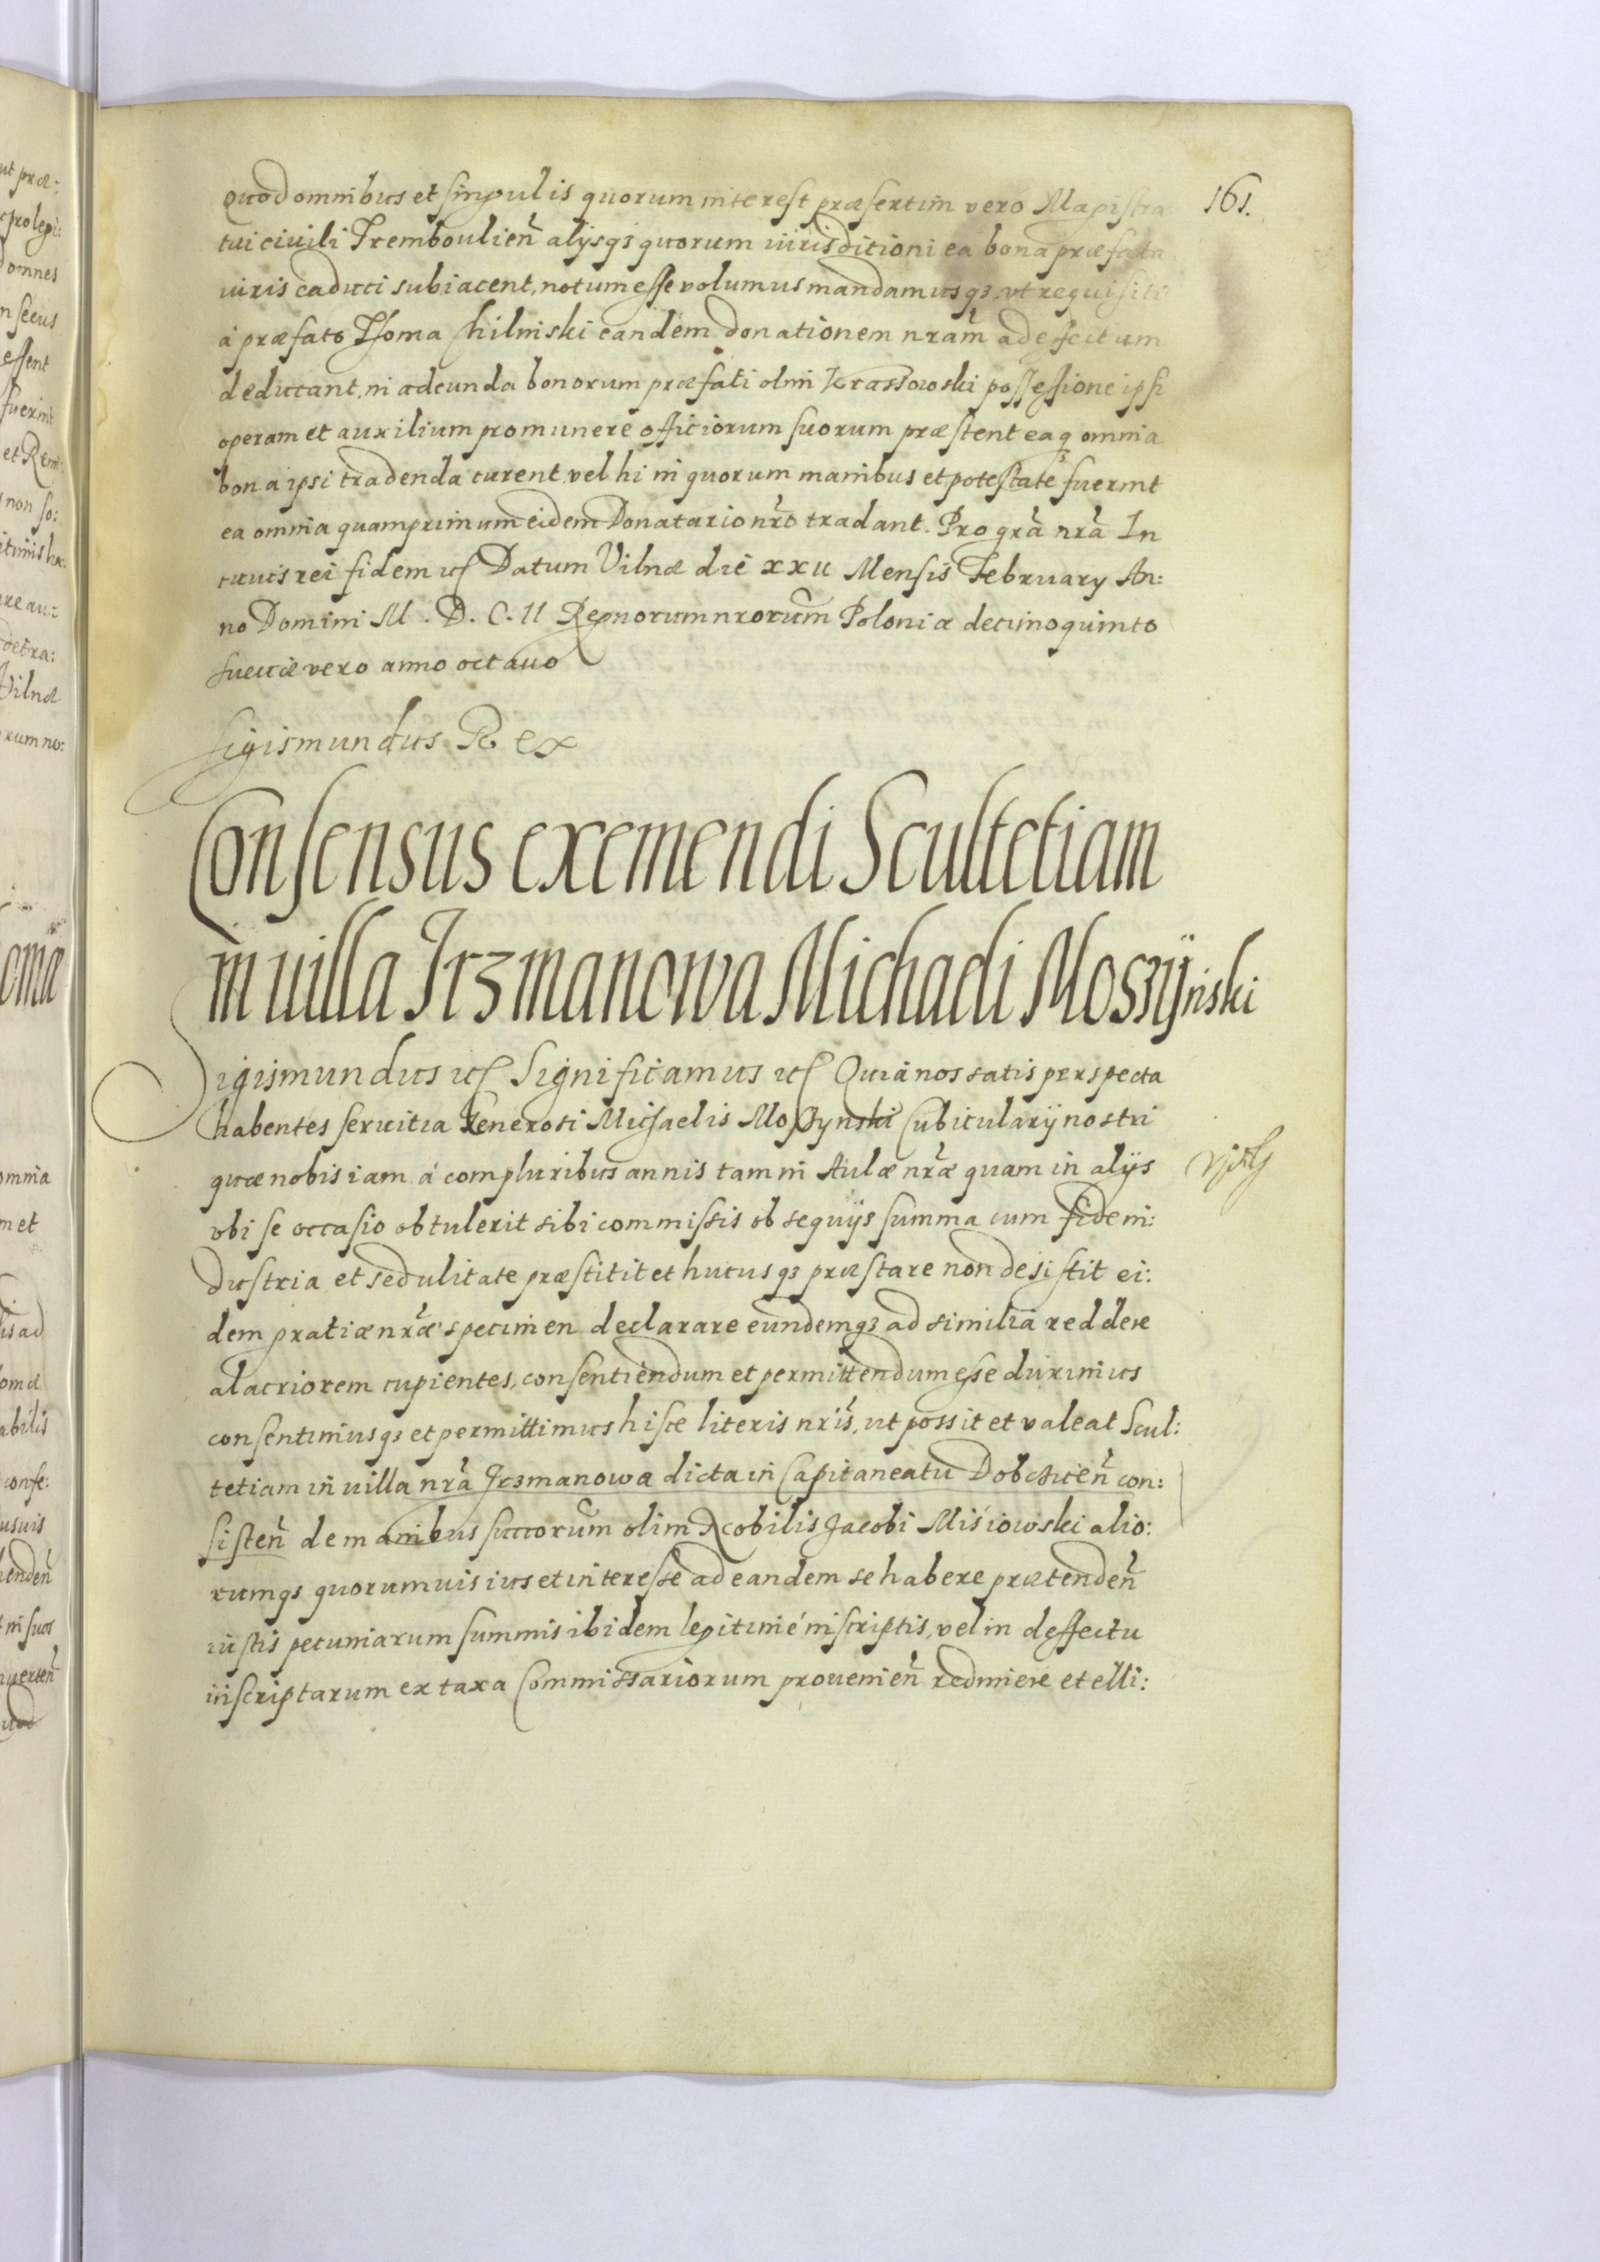 161.
Quod omnibus et singulis quorum interest præsertim vero Magistra
tui ciuili Trembouliен̄ alijsqз quorum iurisditioni ea bona præfata
iuris caduci subiacent, notum esse volumus mandamusqз, vt requisiti
à præfato Thoma Chilinski eandem donationem nrām ad effectum
deducant, in adeunda bonorum præfati olim Krassowski possessione ipsi
operam et auxilium pro munere officiorum suorum præstent eaqз omnia
bona ipsi tradenda curent, vel hi in quorum manibus et potestate fuerint
ea omnia quamprimum eidem Donatario nrō tradant. Pro grā nrā In
cuius rei fidem etc Datum Vilnæ die xxii Mensis February An:
no Domini M. D. C. II Regnorum nrorum̄ Poloniæ decimo quinto
sueciæ vero anno octauo
Sigismundus Rex
Consensus exemendi Scultetiam
in uilla Jrzmanowa Michaeli Moszÿnski
Sigismundus etc Significamus etc Quia nos satis perspecta
habentes seruitia Generosi Michaelis Moszynski Cubicularÿ nostri
quæ nobis iam à compluribus annis tam in Aulæ nrǣ quam in alijs
vbi se occasio obtulerit sibi commissis obsequijs summa cum fide in:
dustria et sedulitate præstitit et hucusqз præstare non desistit ei:
dem gratiæ nrǣ specimen declarare eundemqз ad similia reddere
alacriorem cupientes, consentiendum et permittendum esse duximus
consentimusqз et permittimus hisce literis nris̄, ut possit et valeat Scul:
tetiam in uilla nrā Jrzmanowa dicta in Capitaneatu Dobcsicen̄ con:
sisten̄ de manibus succorum̄ olim Nobilis Jacobi Misiowski alio:
rumqз quorumuis ius et interesse ad eandem se habere prætenden̄
iustis pecuniarum summis ibidem legitimé inscriptis, vel in deffectu
inscriptarum ex taxa Commissariorum prouenien̄ redimere et elli: